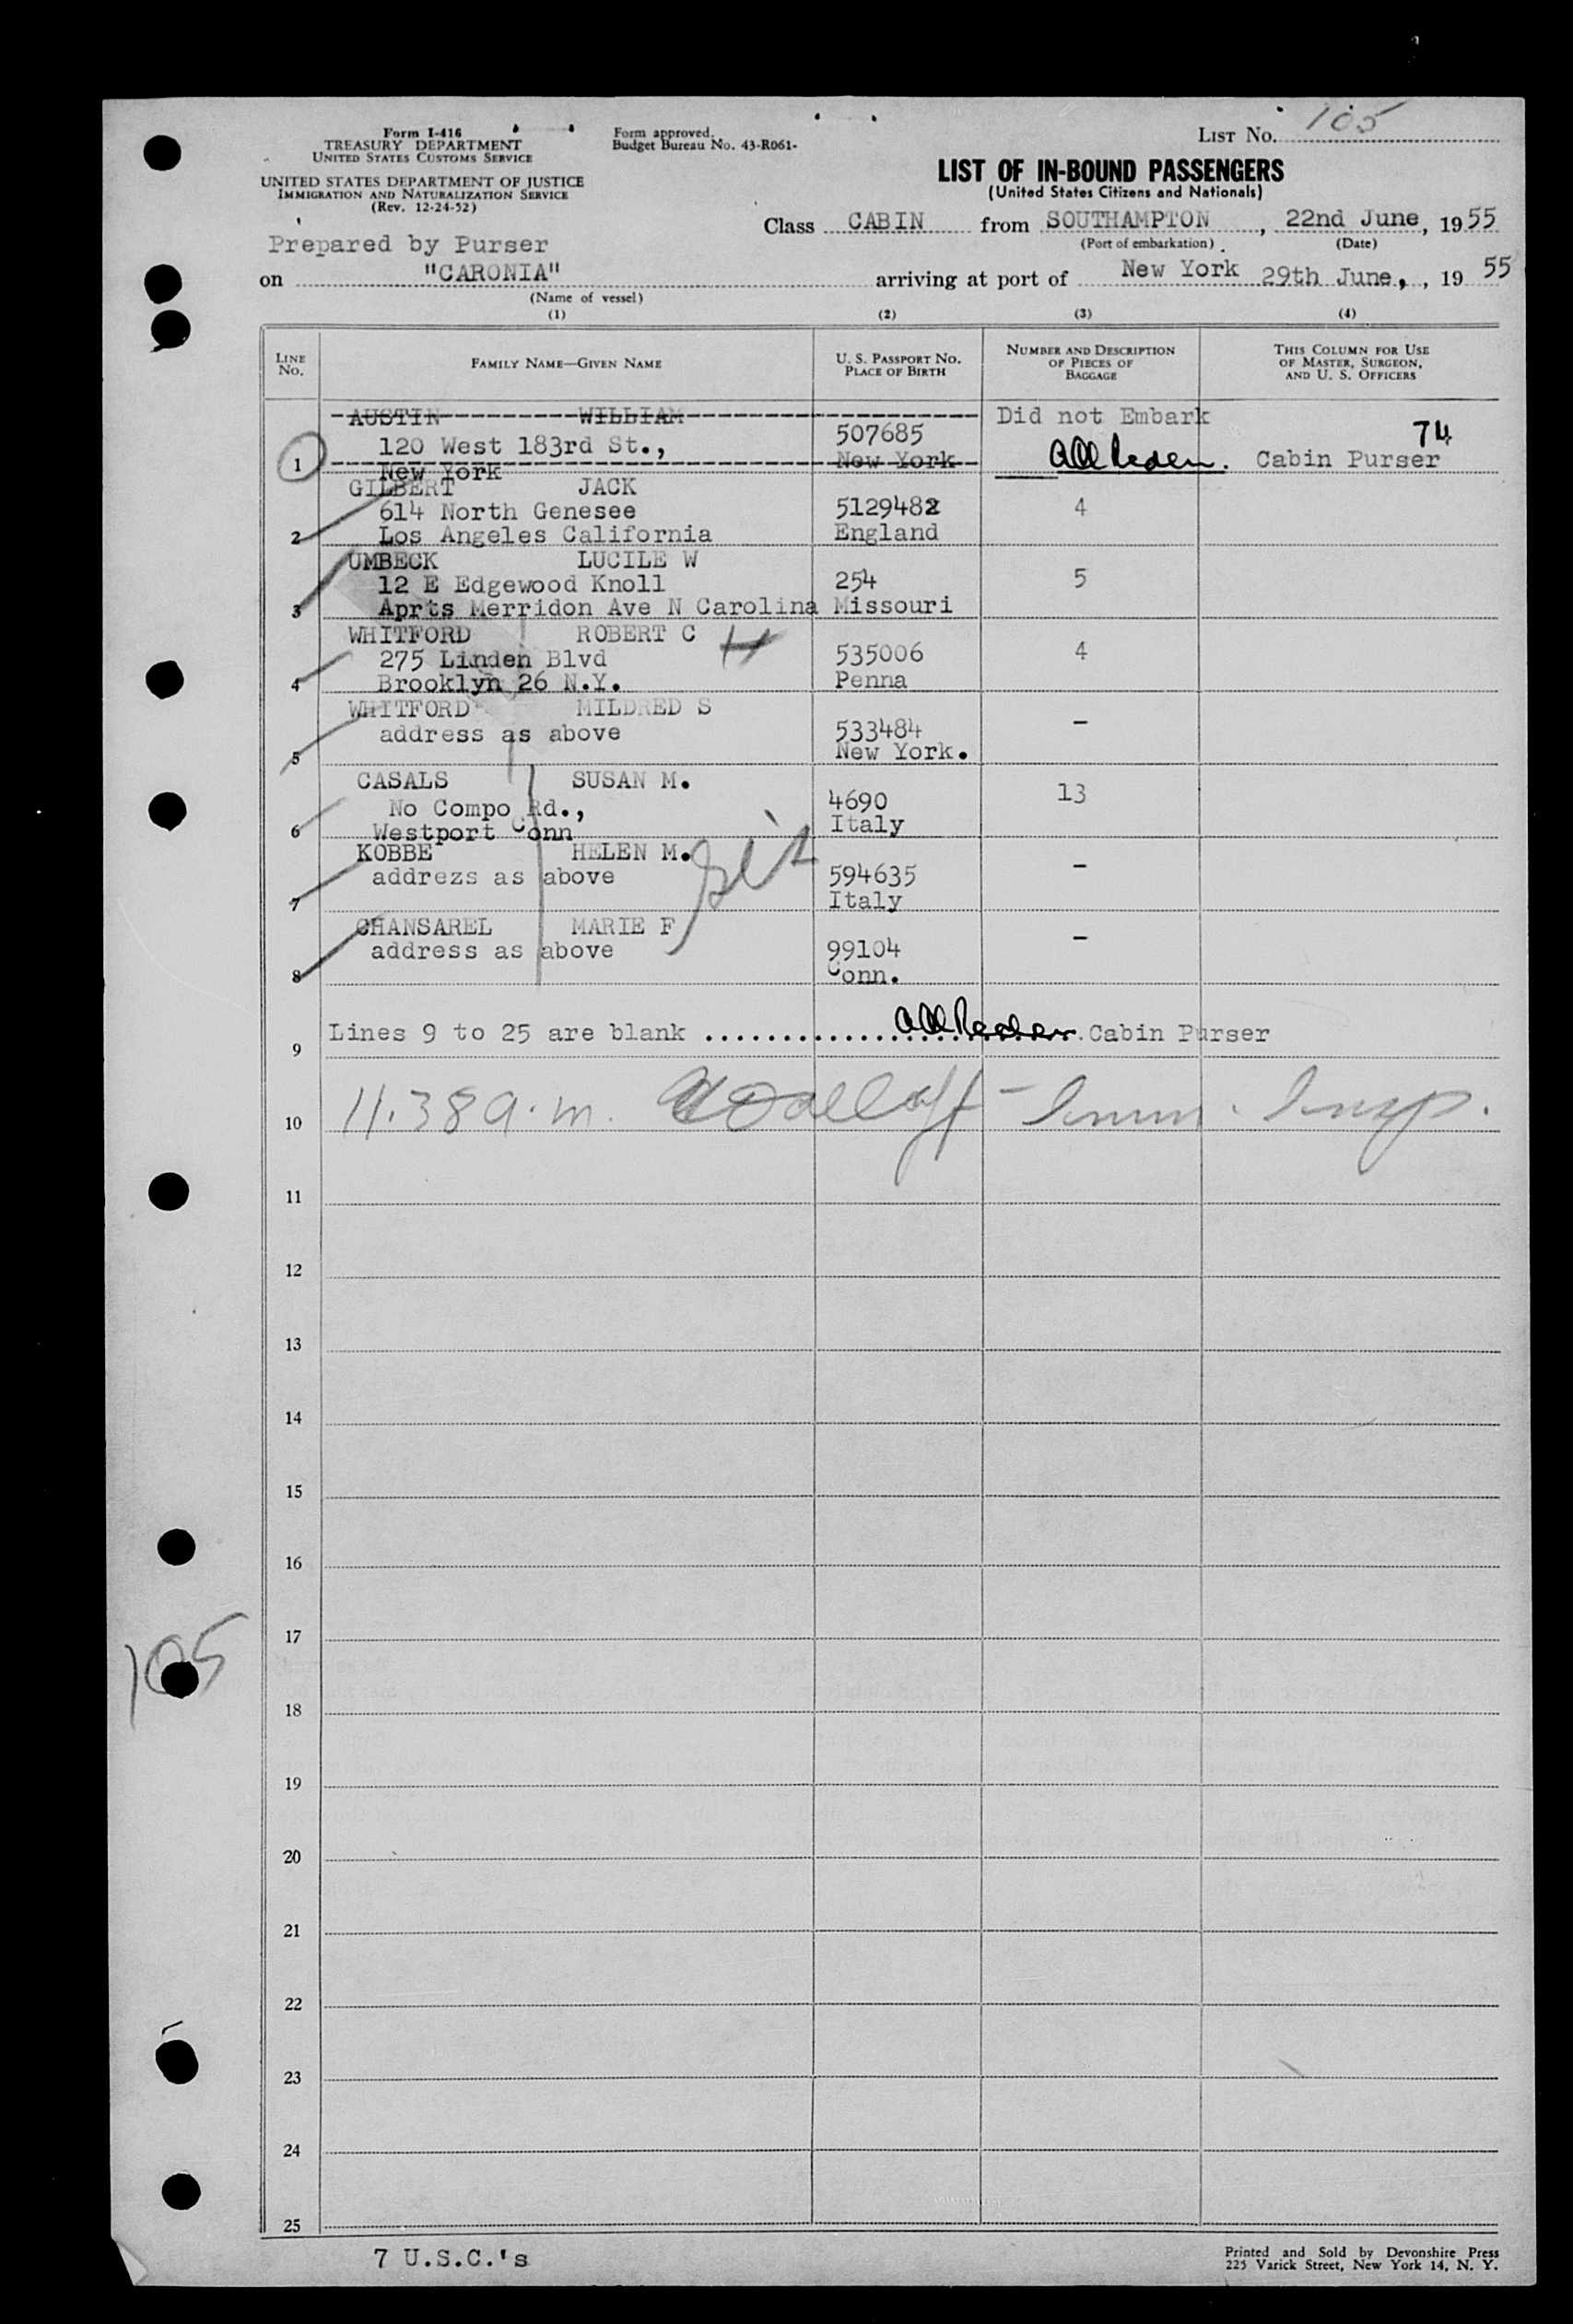 Form I-416
TREASURY DEPARTMENT
UNITED STATES CUSTOMS SERVICE
UNITED STATES DEPARTMENT OF JUSTICE
IMMIGRATION AND NATURALIZATION SERVICE
(Rev. 12-24-52)
Form approved.
Budget Bureau No. 43-R061-
LIST No. 105
LIST OF IN-BOUND PASSENGERS
(United States Citizens and Nationals)
Class CABIN from SOUTHAMPTON, 22nd June, 1955
(Port of embarkation) (Date)
Prepared by Purser
on "CARONIA" arriving at port of New York 29th June, , 19 55
(Name of vessel)
(1) (2) (3) (4)
LINE No. FAMILY NAME—GIVEN NAME U. S. PASSPORT NO. PLACE OF BIRTH NUMBER AND DESCRIPTION OF PIECES OF BAGGAGE THIS COLUMN FOR USE OF MASTER, SURGEON, AND U. S. OFFICERS
AUSTIN WILLIAM Did not Embark
120 West 183rd St., 507685 74
1 New York New York Cabin Purser
GILBERT JACK
614 North Genesee 5129482 4
2 Los Angeles California England
UMBECK LUCILE W
12 E Edgewood Knoll 254 5
3 Aprts Merridon Ave N Carolina Missouri
WHITFORD ROBERT C
275 Linden Blvd 535006 4
4 Brooklyn 26 N.Y. Penna
WHITFORD MILDRED S
address as above 533484 -
5 New York.
CASALS SUSAN M.
No Compo Rd., 4690 13
6 Westport Conn Italy
KOBBE HELEN M.
addrezs as above 594635 -
7 Italy
CHANSAREL MARIE F
address as above 99104 -
8 Conn.
Lines 9 to 25 are blank ........................ Cabin Purser
9
10 11.38 a.m. - Imm. Insp.
11
12
13
14
15
16
17
105
18
19
20
21
22
23
24
25
7 U.S.C.'s
Printed and Sold by Devonshire Press
225 Varick Street, New York 14, N. Y.